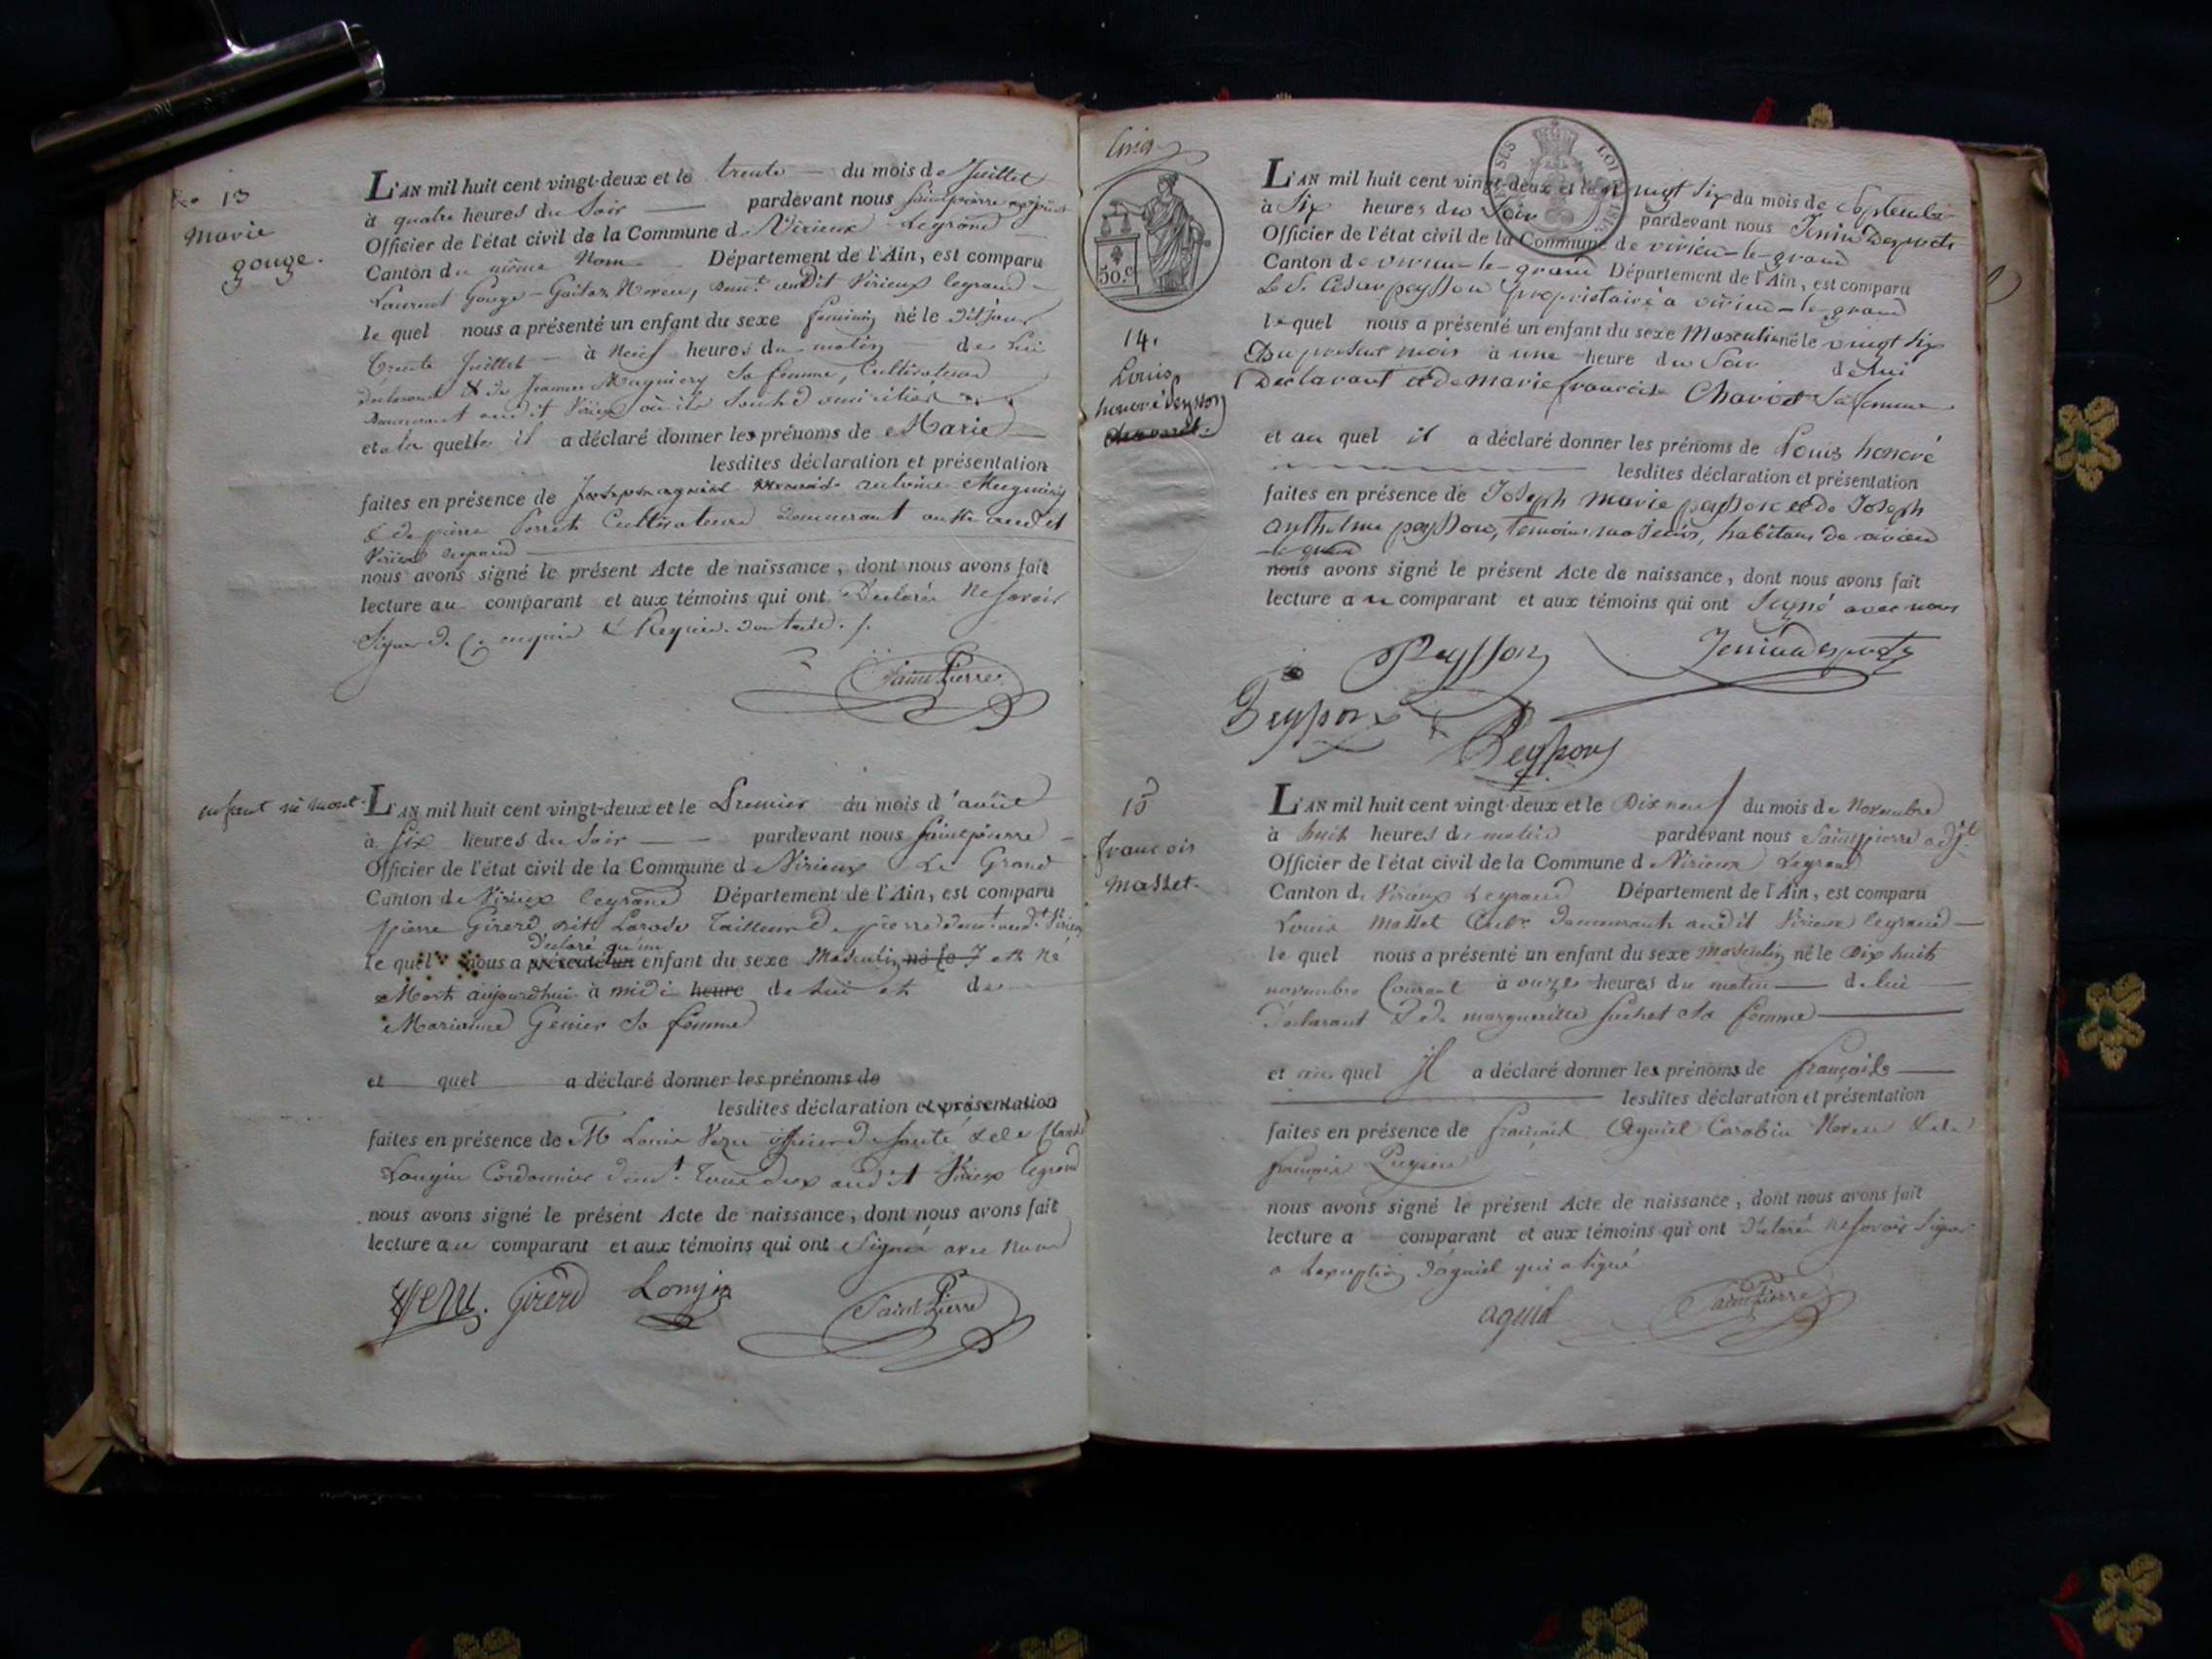 No 13
Marie
gouge.
L'AN mil huit cent vingt-deux et le trente du mois de Juillet
à quatre heures du Soir pardevant nous Saintpierre adjoint
Officier de l'état civil de la Commune de Virieux Legrand
Canton du même Nom Département de l'Ain, est comparu
Laurent Gouge-Goitaz Neveu, Demt. audit Virieux legrand
le quel nous a présenté un enfant du sexe feminin né le Dit jour
trente Juillet à Neuf heures du matin de Lui
déclarant & de Jeanne Muguiery Sa femme, Cultivateurs
Demeurant audit Virieux où ils Sont Domiciliés
et a la quelle il a déclaré donner les prénoms de Marie
lesdites déclaration et présentation
faites en présence de antoine Muguiery
& de pierre Perret Cultivateurs Demeurant audit
Virieux legrand
nous avons signé le présent Acte de naissance, dont nous avons fait
lecture au comparant et aux témoins qui ont Déclarés Ne Savoir
Signer De Ce enquis & Requis.
Saint Pierre
enfant né mort
L'AN mil huit cent vingt-deux et le Premier du mois d'août
à Six heures du Soir pardevant nous Saintpierre
Officier de l'état civil de la Commune de Virieux Le Grand
Canton de Virieux legrand Département de l'Ain, est comparu
pierre Girerd dit Larode Tailleur De pierre demt. audt. Virieu
déclaré qu'un
le quel nous a présenté un enfant du sexe Masculin né le 7 est Né
Mort aujourdhui à midi heure de Lui et de
Marianne Genier Sa femme
et quel a déclaré donner les prénoms de
lesdites déclaration et présentation
faites en présence de M Louis Veru officier de Santé & de Claude
Longin Cordonnier demt. Tous deux audit Virieux legrand
nous avons signé le présent Acte de naissance, dont nous avons fait
lecture au comparant et aux témoins qui ont Signés avec Nous
Veru. Girerd Longin Saint Pierre
Cinq
50.c
SES LOI 1816
14.
Louis
honoré Peysson
chavoret.
L'AN mil huit cent vingt-deux et le vingt Six du mois de Septembre
à Six heures du Soir pardevant nous Jenin Desprets
Officier de l'état civil de la Commune de virieu-le-grand
Canton de virieu-le-grand Département de l'Ain, est comparu
Le S. César peysson propriétaire a virieu-le-grand
le quel nous a présenté un enfant du sexe Masculin né le vingt Six
Du present mois à une heure du Soir de Lui
Declarant et de marie francoise Chavoret Sa femme
et au quel il a déclaré donner les prénoms de Louis honoré
lesdites déclaration et présentation
faites en présence de Joseph marie peysson et de Joseph
anthelme peysson, temoins majeurs, habitans de virieu
-le-grand
nous avons signé le présent Acte de naissance, dont nous avons fait
lecture au comparant et aux témoins qui ont Signé avec nous
Peysson Jenin Desprets
Peysson
Peysson
15
francois
masset.
L'AN mil huit cent vingt-deux et le Dix neuf du mois de Novembre
à huit heures du matin pardevant nous Saintpierre adjt.
Officier de l'état civil de la Commune de Virieux Legrand
Canton de Virieux Legrand Département de l'Ain, est comparu
Louis Masset Cultr. Demeurant audit Virieux legrand
le quel nous a présenté un enfant du sexe masculin né le Dix huit
novembre Courant à onze heures du matin de lui
Déclarant & de margueritte Suchet Sa femme
et au quel Il a déclaré donner les prénoms de françois
lesdites déclaration et présentation
faites en présence de françois Aguiel Carabin Neveu & de
françois Pugieu
nous avons signé le présent Acte de naissance, dont nous avons fait
lecture a comparant et aux témoins qui ont Déclarés Ne Savoir Signer
a Lexception d'aguiel qui a Signé
aguiel Saint Pierre